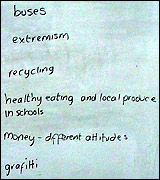 buses
extremism
recycling
healthy eating and local produce
in schools
money - different attitudes
grafitti